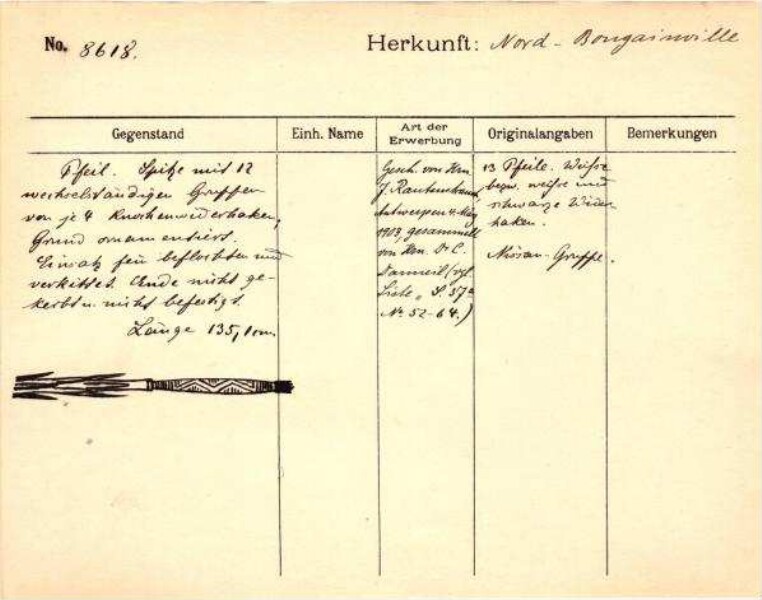 No. 8618.
Herkunft: Nord-Bougainville
Gegenstand
Einh. Name
Art der Erwerbung
Originalangaben
Bemerkungen
Pfeil. Spitze mit 12
wechselständigen Gruppen
von je 4 Knochenwiederhaken,
Grund ornamentiert.
Einsatz fein beflochten und
verkittet. Ende nicht ge-
kerbt u. nicht befestigt.
Länge 135,1 cm.
Gesch. von Hrn.
J. Rautenstrauch,
Antwerpen 4. März
1903, gesammelt
von Hrn. Dr C.
Danneil (vgl.
Liste, S. 57a
No 52-64.)
13 Pfeile. Weisse
bezw. weisse und
schwarze Wider
haken.
Nissan-Gruppe.